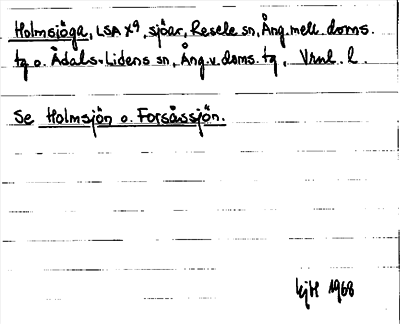 Holmsjöga, LSA X9, sjöar, Resele sn, Ång. mell. doms.
tg o. Ådals-Lidens sn, Ång. v. doms. tg, Vrnl. l.
Se Holmsjön o. Forsåssjön.
1968